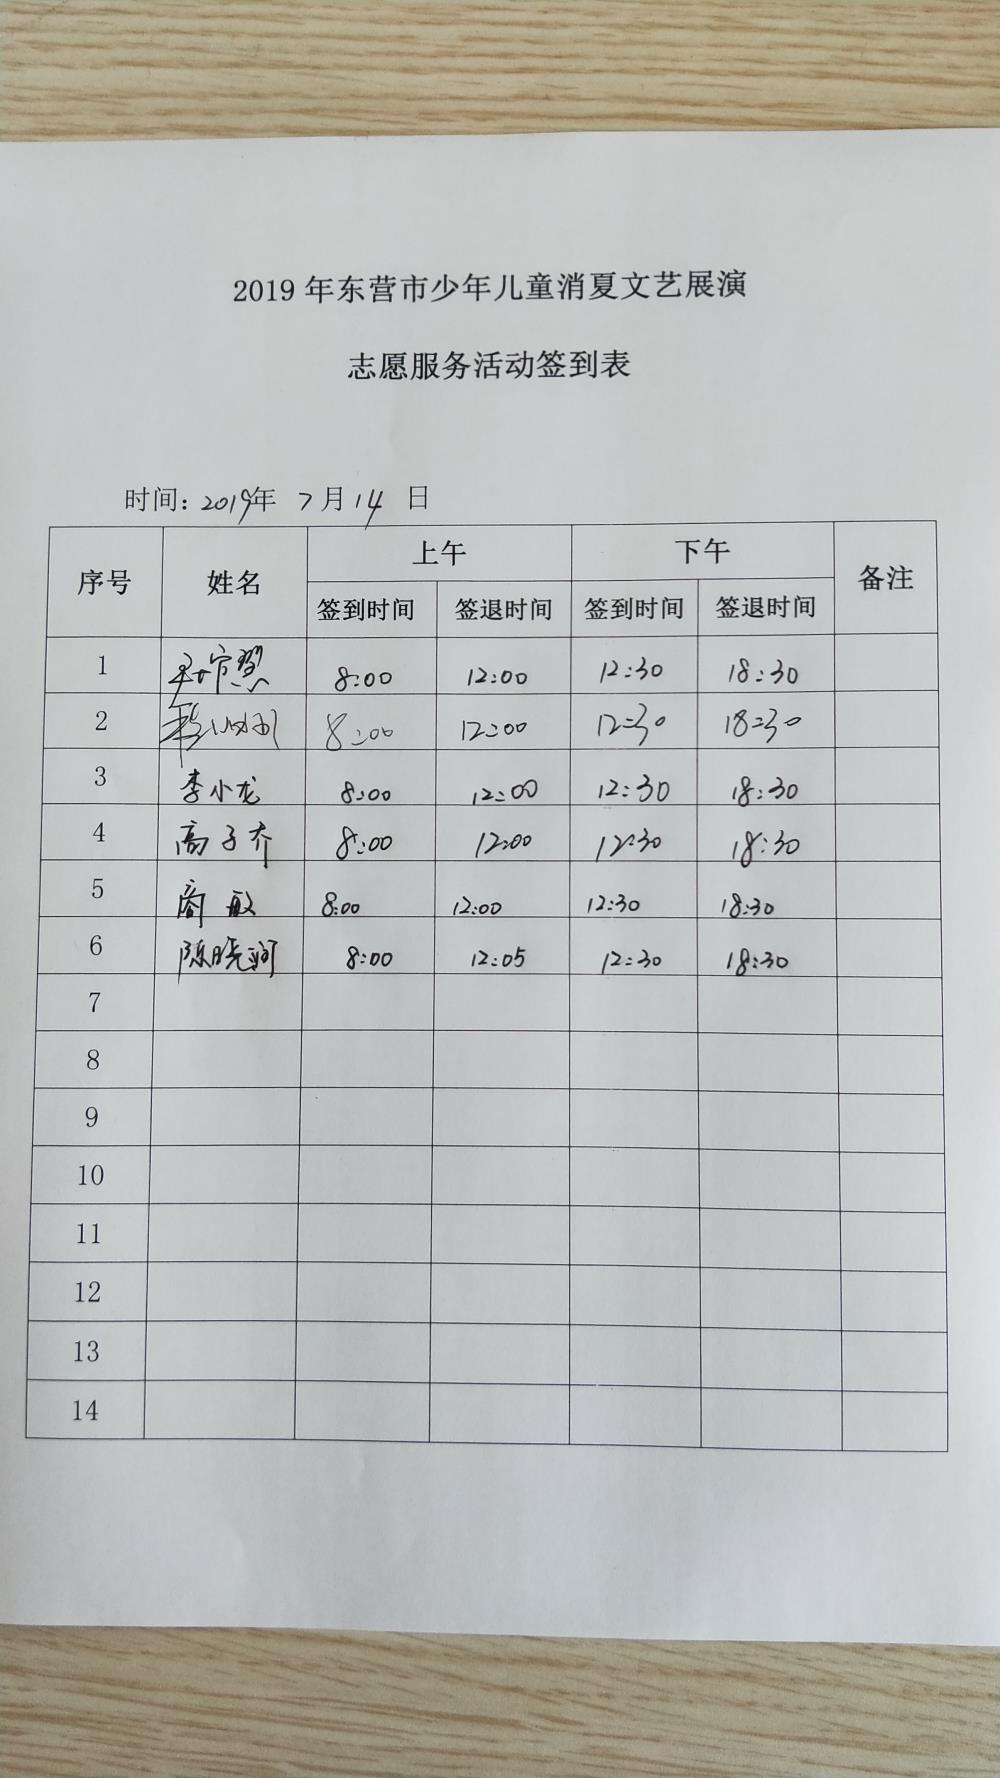 2019年东营市少年儿童消夏文艺展演
志愿服务活动签到表
时间: 2019年 7月14 日
序号 姓名 上午 下午 备注
签到时间 签退时间 签到时间 签退时间
1 8:00 12:00 12:30 18:30
2 8:00 12:00 12:30 18:30
3 李小龙 8:00 12:00 12:30 18:30
4 高子乔 8:00 12:00 12:30 18:30
5 商敏 8:00 12:00 12:30 18:30
6 陈晓润 8:00 12:05 12:30 18:30
7
8
9
10
11
12
13
14